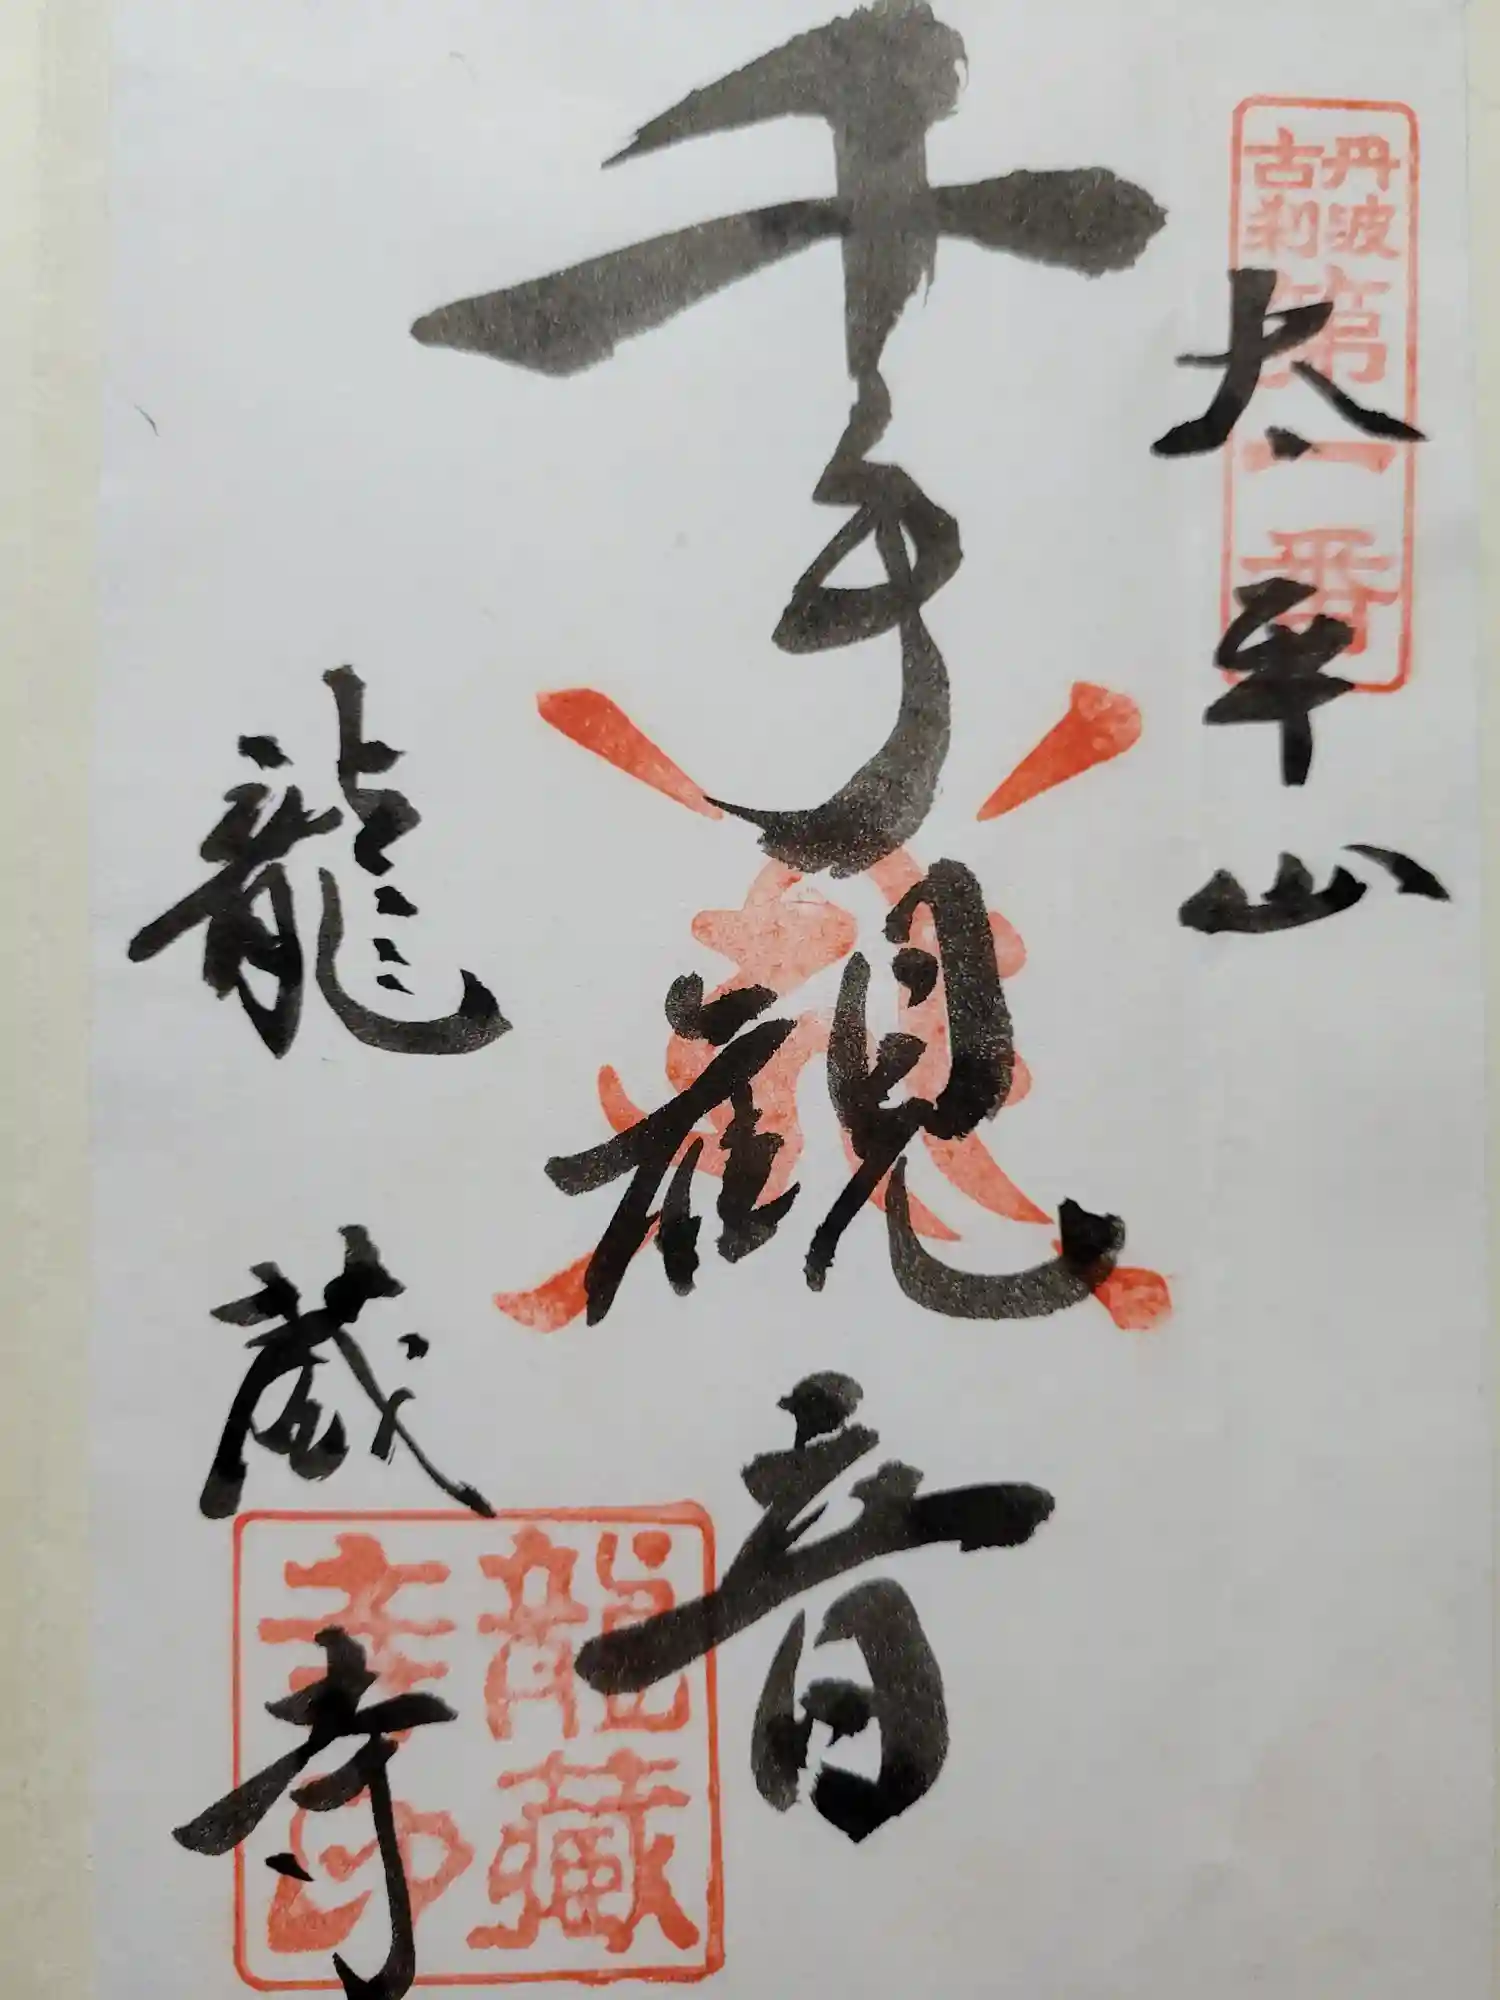 丹波
古刹
第一番
太平山
千手觀音
龍蔵寺
龍藏
寺印